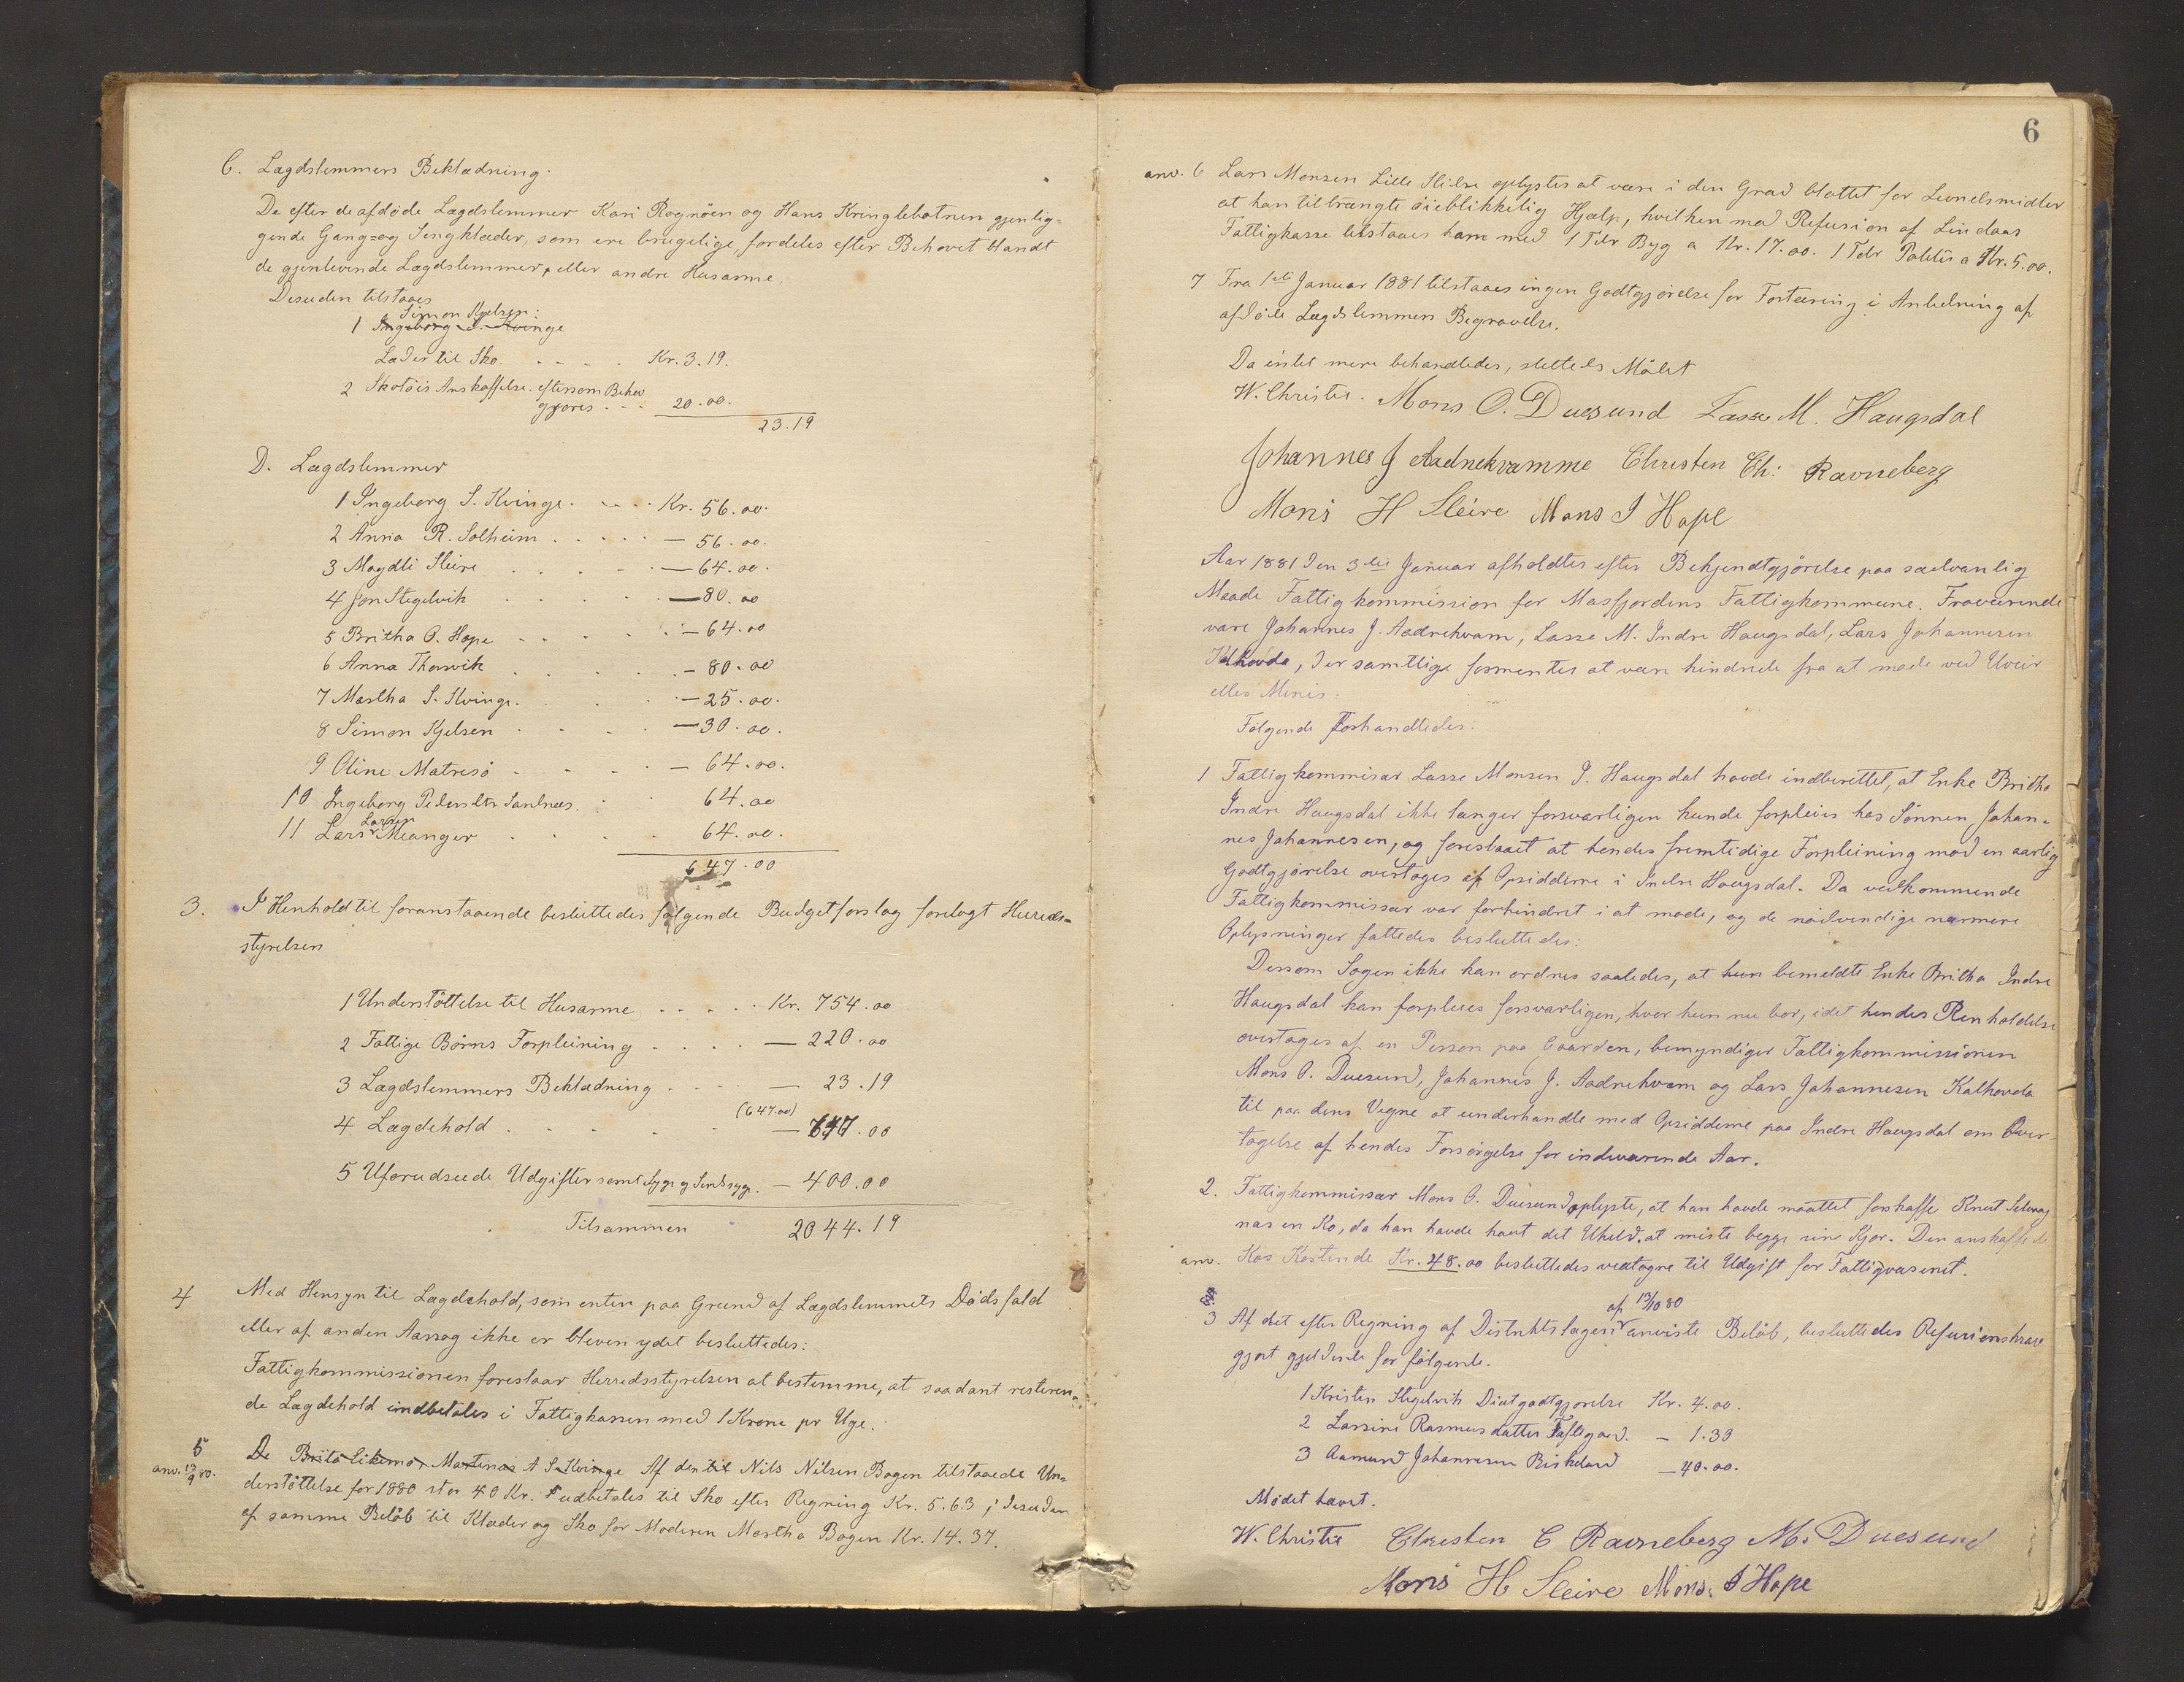 C. Lægdslemmers Beklædning.
De efter de afdøde Lægdslemmer Kari Rognøen og Hans Kringlebotnen gjenlig=
gende Gang= og Sengklæder, som ere brugelige, fordeles efter Behovet blandt
de gjenlevende Lægdslemmer, eller andre Husarme.
Desuden tilstaaes
Simon Kjelsen:
1 Ingeborg S. Kvinge
Læder til Sko. . . . . Kr. 3.19.
2 Skotøis Anskaffelse. eftersom Behov
gjøres . . . 20.00.
23.19
D. Lægdslemmer
1 Ingeborg S. Kvinge. . . . Kr. 56.00.
2 Anna R. Solheim . . . . . — 56.00.
3 Magdli Sleire . . . . — 64.00.
4 Jon Stegelvik . . . . — 80.00
5 Britha O. Hope . . . . . — 64.00
6 Anna Thorsvik . . . . . — 80.00
7 Martha S. Kvinge. . . . — 25.00.
8 Simon Kjelsen . . . . — 30.00.
9 Oline Matresø . . . . — 64.00.
10 Ingeborg Pedersdtr Sandnæs. . . 64.00
Larsen
11 Lars Meanger . . . . 64.00.
647.00
3. I Henhold til foranstaaende besluttedes følgende Budgetforslag forelagt Herreds=
styrelsen
1 Understøttelse til Husarme . . . . . Kr. 754.00
2 Fattige Børns Forpleining . . . . — 220.00
3 Lægdslemmers Beklædning . . . . — 23.19
(647.00)
4. Lægdehold . . . . . — 647.00
5 Uforudseede Udgifter samt Syge og Sindssyge. — 400.00
Tilsammen 2044.19
4 Med Hensyn til Lægdehold, som enten paa Grund af Lægdslemmets Dødsfald
eller af anden Aarsag ikke er bleven ydet besluttedes:
Fattigkommissionen foreslaar Herredsstyrelsen at bestemme, at saadant resteren=
de Lægdehold indbetales i Fattigkassen med 1 Krone pr Uge.
5 De Martinas A S. Kvinge Af den til Nils Nilsen Bogen tilstaaede Un=
anv. 13/9 80.
derstøttelse for 1880 stor 40 Kr. udbetales til Sko efter Regning Kr. 5.63; desuden
af samme Beløb til Klæder og Sko for Moderen Martha Bogen Kr. 14.37.
6
anv. 6 Lars Monsen Lille Sleire oplystes at være i den Grad blottet for Levnedsmidler
at han tiltrængte øieblikkelig Hjælp, hvilken mod Refusion af Lindaas
Fattigkasse tilstaaes ham med 1 Tdr Byg a Kr. 17.00. 1 Tdr Poteter a Kr. 5.00.
7 Fra 1ste Januar 1881 tilstaaes ingen Godtgjørelse for Fortæring i Anledning af
afdøde Lægdslemmers Begravelse.
Da intet mere behandledes, sluttedes Mødet
W. Christie. Mons O. Duesund Lasse M. Haugsdal
Johannes J Aadnekvamme Christen Ch: Ravneberg
Mons H Sleire Mons J Hope
Aar 1881 den 3die Januar afholdtes efter Bekjendtgjørelse paa sædvanlig
Maade Fattigkommission for Masfjordens Fattigkommune. Fraværende
vare Johannes J. Aadnekvam, Lasse M. Indre Haugsdal, Lars Johannesen
Kalhovda, der samtlige formentes at være hindrede fra at møde ved Uveir
eller Menis.
Følgende Forhandledes:
1 Fattigkommisær Lasse Monsen I. Haugsdal havde indberettet, at Enke Britha
Indre Haugsdal ikke længer forsvarligen kunde forpleies hos Sønnen Johan=
nes Johannesen, og foreslaaet at hendes fremtidige Forpleining mod en aarlig
Godtgjørelse overtoges af Opsidderne i Indre Haugsdal. Da vedkommende
Fattigkommissær var forhindret i at møde, og de nødvendige nærmere
Oplysninger fattedes besluttedes:
Dersom Sagen ikke kan ordnes saaledes, at hun bemeldte Enke Britha Indre
Haugsdal kan forpleies forsvarligen, hvor hun nu bor, idet hendes Renholdelse
overtages af en Person paa Gaarden, bemyndiger Fattigkommissionen
Mons O. Duesund, Johannes J. Aadnekvam og Lars Johannesen Kalhovda
til paa dens Vegne at underhandle med Opsidderne paa Indre Haugsdal om Over=
tagelse af hendes Forsørgelse for indeværende Aar.
2. Fattigkommissær Mons O. Duesund oplyste, at han havde maattet forskaffe Knut Selvaag
næs en Ko, da han havde havt det Uheld at miste begge sin Kjør. Den anskaffede
anv. Kos Kostende Kr. 48.00 besluttedes vedtagne til Udgift for Fattigvæsenet.
af 13/10 80
3 Af det efter Regning af Distriktslægen anviste Beløb, besluttedes Refusionskrav
gjort gjeldende for følgende.
1 Kristen Stegelvik Diætgodtgjørelse Kr. 4.00.
2 Larsine Rasmusdatter . — 1.33
3 Aamund Johannesen Birkeland — 40.00.
Mødet hævet.
W. Christie Christen C Ravneberg M. Duesund
Mons H Sleire Mons. J Hope